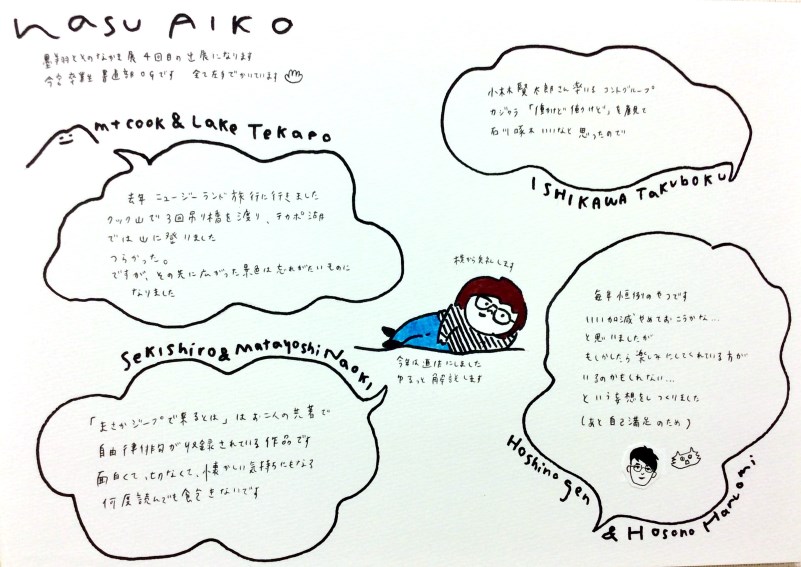 nasu AIKO
墨翔とそのなかま展 4回目の出展になります
今宮卒業生 書道部OGです 全て左手でかいています
mt cook & Lake Tekapo
去年 ニュージーランド旅行に行きました
クック山で3回吊り橋を渡り、テカポ湖
では山に登りました
つらかった。
ですが、その先に広がった景色は忘れがたいものに
なりました
小林賢太郎さん率いる コントグループ
カジャラ 「働けど働けど」を観て
石川啄木いいなと思ったので
ISHIKAWA Takuboku
横から失礼します
今年は遊法にしました
ゆるっと解説します
Sekishiro & Matayoshi Naoki
「まさかジープで来るとは」はお二人の共著で
自由律俳句が収録されている作品です
面白くて、切なくて、懐かしい気持ちにもなる
何度読んでも飽きないです
毎年恒例のやつです
いい加減やめておこうかな…
と思いましたが
もしかしたら楽しみにしてくれている方が
いるのかもしれない…
という妄想をしつくりました
(あと自己満足のため)
Hoshino gen
& Hosono Haruomi